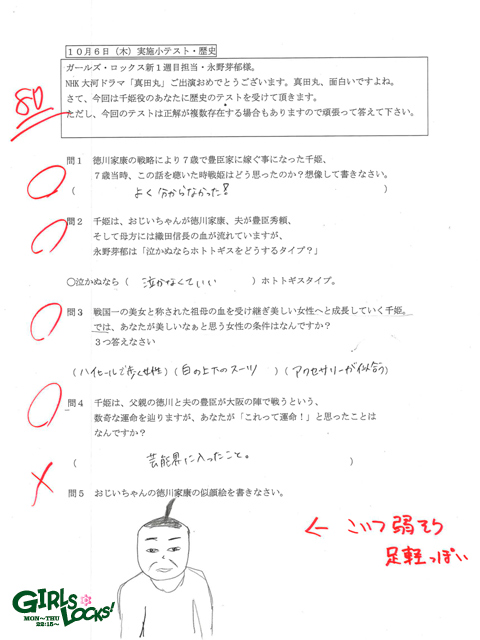 10月6日(木)実施小テスト・歴史
ガールズ・ロックス新1週目担当・永野芽郁様。
NHK大河ドラマ「真田丸」ご出演おめでとうございます。真田丸、面白いですよね。
さて、今回は千姫役のあなたに歴史のテストを受けて頂きます。
ただし、今回のテストは正解が複数存在する場合もありますので頑張って答えて下さい。
80
問1 徳川家康の戦略により7歳で豊臣家に嫁ぐ事になった千姫、
7歳当時、この話を聴いた時戦姫はどう思ったのか?想像して書きなさい。
( よく分からなかった! )
問2 千姫は、おじいちゃんが徳川家康、夫が豊臣秀頼、
そして母方には織田信長の血が流れていますが、
永野芽郁は「泣かぬならホトトギスをどうするタイプ?」
○泣かぬなら( 泣かなくていい )ホトトギスタイプ。
問3 戦国一の美女と称された祖母の血を受け継ぎ美しい女性へと成長していく千姫。
では、あなたが美しいなぁと思う女性の条件はなんですか?
3つ答えなさい
(ハイヒールで歩く女性)(白の上下のスーツ)(アクセサリーが似合う)
問4 千姫は、父親の徳川と夫の豊臣が大阪の陣で戦うという、
数奇な運命を辿りますが、あなたが「これって運命!」と思ったことは
なんですか?
( 芸能界に入ったこと。 )
問5 おじいちゃんの徳川家康の似顔絵を書きなさい。
← こいつ弱そう
足軽っぽい
GIRLS LOCKS!
MON~THU
22:15~